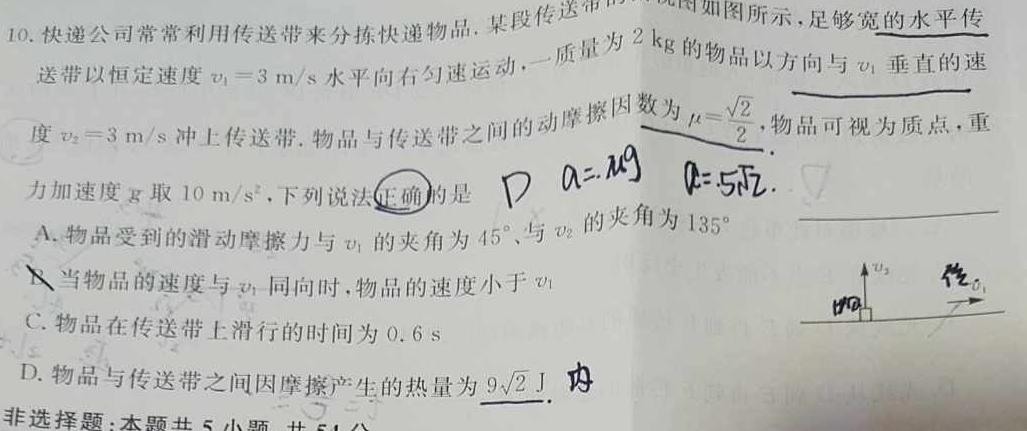 10. 快递公司常常利用传送带来分拣快递物品. 某段传送带的 图如图所示,足够宽的水平传
送带以恒定速度 v₁=3 m/s 水平向右匀速运动,一质量为 2 kg 的物品以方向与 v₁ 垂直的速
度 v₂=3 m/s 冲上传送带. 物品与传送带之间的动摩擦因数为 μ=√2/2,物品可视为质点,重
力加速度 g 取 10 m/s²,下列说法正确的是 D a=μg a=5√2.
A. 物品受到的滑动摩擦力与 v₁ 的夹角为 45°、与 v₂ 的夹角为 135°
B. 当物品的速度与 v₁ 同向时,物品的速度小于 v₁
v₂
v₁
C. 物品在传送带上滑行的时间为 0.6 s
D. 物品与传送带之间因摩擦产生的热量为 9√2 J
非选择题:本题共 5 小题,共 54 分